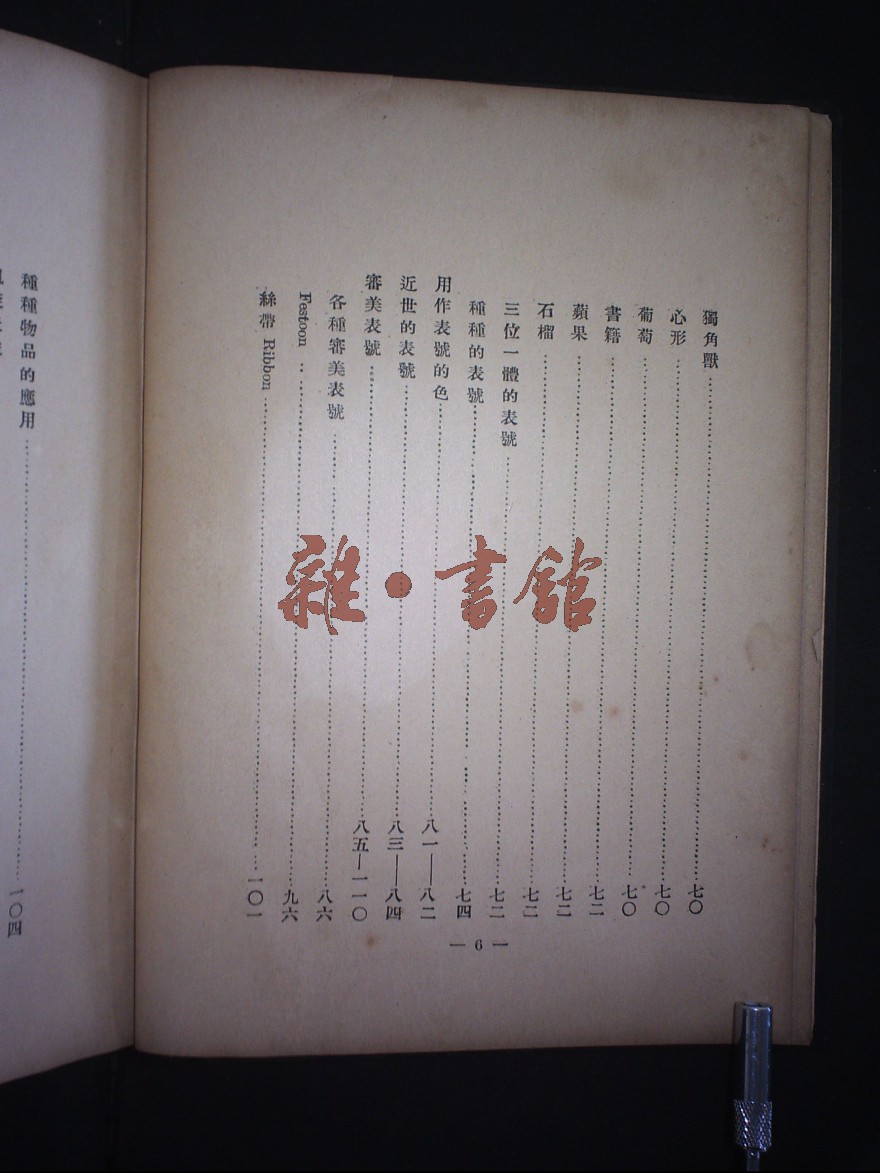 獨角獸……七〇
心形……七〇
葡萄……七〇
書籍……七二
蘋果……七二
石榴……七二
三位一體的表號……七二
種種的表號……七四
用作表號的色……八一—八二
近世的表號……八三—八四
審美表號……八五—一一〇
各種審美表號……八六
Festoon……九六
絲帶 Ribbon……一〇一
— 6 —
種種物品的應用……一〇四
雜·書館